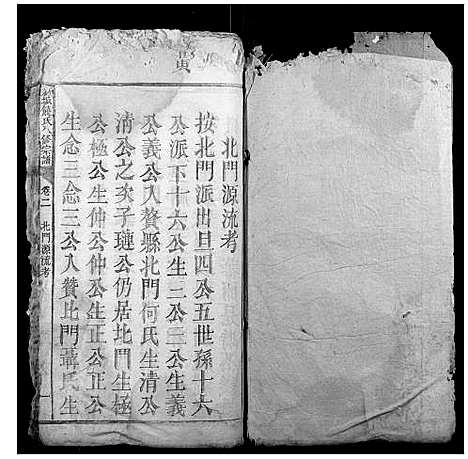 北門源流考
按北門派出旦四公五世孫十六
公派下十六公生二公三公生義
公義公入贅縣北門何氏生清公
清公之次子璉公仍居北門生極
公極公生仲公仲公生正公正公
生念三念三公入贅北門聶氏生
熊氏八修宗譜
卷二
北門源流考
一